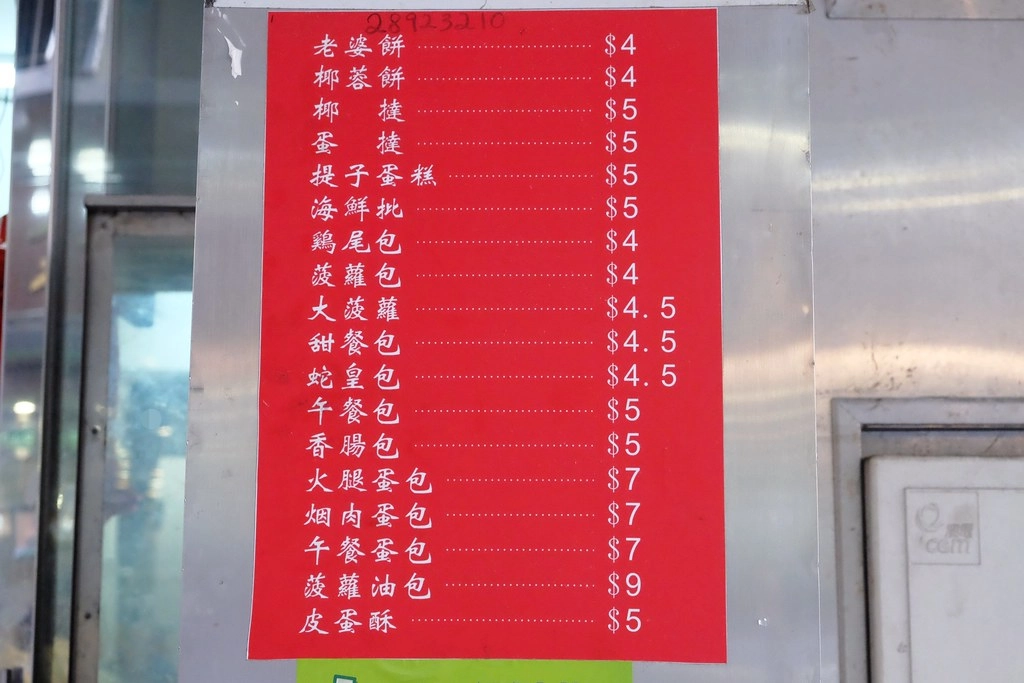 28923210
老婆餅 $4
椰蓉餅 $4
椰撻 $5
蛋撻 $5
提子蛋糕 $5
海鮮批 $5
鷄尾包 $4
菠蘿包 $4
大菠蘿 $4.5
甜餐包 $4.5
蛇皇包 $4.5
午餐包 $5
香腸包 $5
火腿蛋包 $7
烟肉蛋包 $7
午餐蛋包 $7
菠蘿油包 $9
皮蛋酥 $5